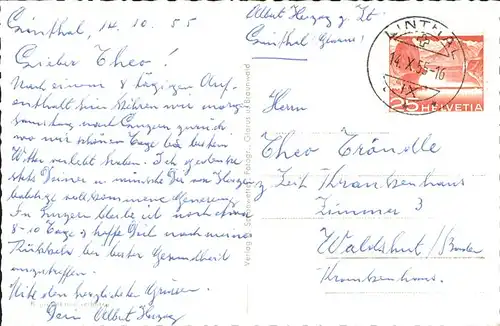 Linthal, 14. 10. 55
Lieber Theo!
Nach einem 8 tägigen Auf-
enthalt hier kehren wir morgen
Samstag nach zurück
wo wir schönen Tage bei bestem
Wetter verlebt haben. Ich gedenke
stets Deiner u. wünsche Dir von Herzen
baldige vollkommene Genesung.
In Luzern bleibe ich noch etwa
8-10 Tage & hoffe Dich nach meiner
Rückkehr bei bester Gesundheit
anzutreffen.
Mit den herzlichsten Grüssen
Dein Albert Herzog
Albert Herzog z. Zt.
Linthal (Glarus)
LINTHAL
14. X. 55-16
IX
25 HELVETIA
Verlag Schönwetter, Photogr., Glarus Braunwald
Herrn
Theo Tröndle
z. Zeit Krankenhaus
Zimmer 3
Waldshut / Baden
Krankenhaus.